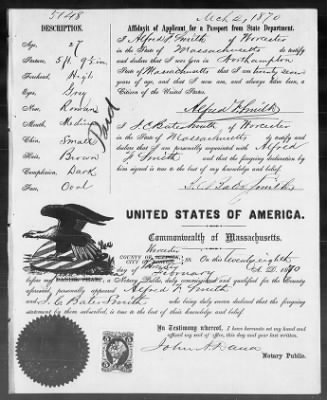 5148
Mch 2, 1870
DESCRIPTION.
Affidavit of Applicant for a Passport from State Department.
Age, 27
I Alfred F Smith of Worcester
in the State of Massachusetts do testify
Stature, 5 ft. 9 1/2 in.
and declare that I was born in Northampton
Forehead, High
State of Massachusetts that I am twenty seven
Eyes, Grey
years of age, and that I was, and am, and always have been, a
Citizen of the United States.
Nose, Roman
Alfred F Smith
Mouth, Medium
Paid
I J. C. Bates Smith of Worcester
Chin, Small
in the State of Massachusetts do testify and
Hair, Brown
declare that I am personally acquainted with Alfred
F Smith and that the foregoing declaration by
Complexion, Dark
him signed is true to the best of my knowledge and belief.
Face, Oval
J. C. Bates Smith
UNITED STATES OF AMERICA.
Commonwealth of Massachusetts.
Worcester
COUNTY OF SS. On this twenty eighth
day of February A. D. 1870
before me a Notary Public, duly commissioned and qualified for the County
aforesaid, personally appeared Alfred F. Smith
and J. C. Bates Smith who being duly sworn declared that the foregoing
statement by them subscribed, is true to the best of their knowledge and belief.
In Testimony whereof, I have hereunto set my hand and
affixed my seal of office, this day and year last written.
John A Dana
Notary Public.